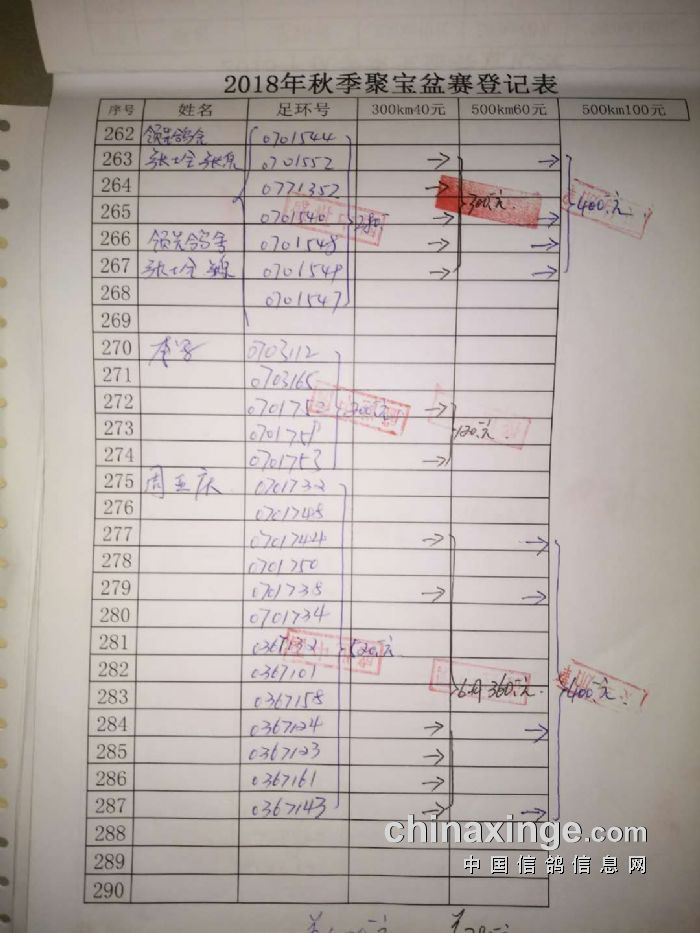 2018年秋季聚宝盆赛登记表
序号 姓名 足环号 300km40元 500km60元 500km100元
262 领先鸽舍 0701544
263 0701552 → → →
264 0771352 →
300元. 400元.
265 0701540 → →
266 领先鸽舍 0701548 → →
267 0701549 → →
268 0701547
269
270 0703112
271 0703165
272 0701752 300元 →
273 120元
274 0701753 →
275 周亚庆 0701732
276 0701748
277 0701744 → →
278 0701750
279 0701738 → →
280 0701734
281 0367132 520元
282 0367101
283 0367158 360元. 400元.
284 0367124 → →
285 0367123 →
286 0367161 →
287 0367143 → →
288
289
290
chinaxinge.com
中国信鸽信息网